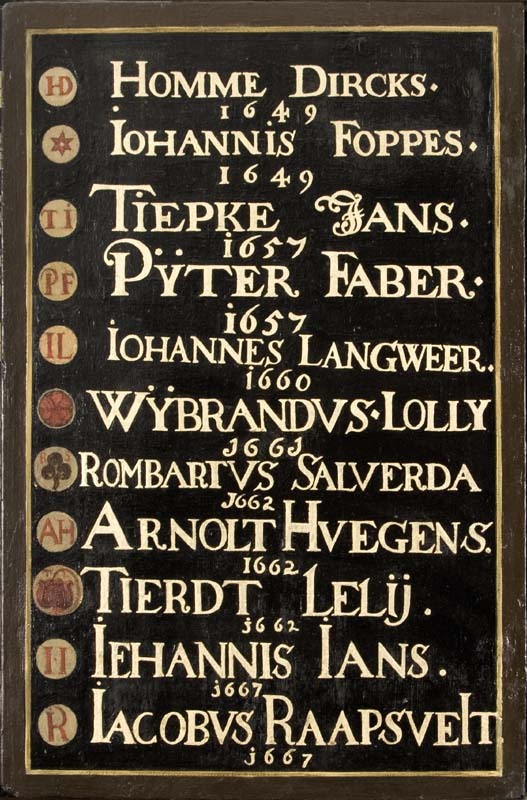 HD HOMME DIRCKS.
1649
IOHANNIS FOPPES.
1649
TI TIEPKE JANS.
1657
PF PŸTER FABER.
1657
IL IOHANNES LANGWEER.
1660
WŸBRANDVS·LOLLY
1661
RS ROMBARTVS SALVERDA
1662
AH ARNOLT HVEGEN.S.
1662
TIERDT LELIJ.
1662
II IEHANNIS IANS.
1667
R IACOBVS RAAPSVELT.
1667